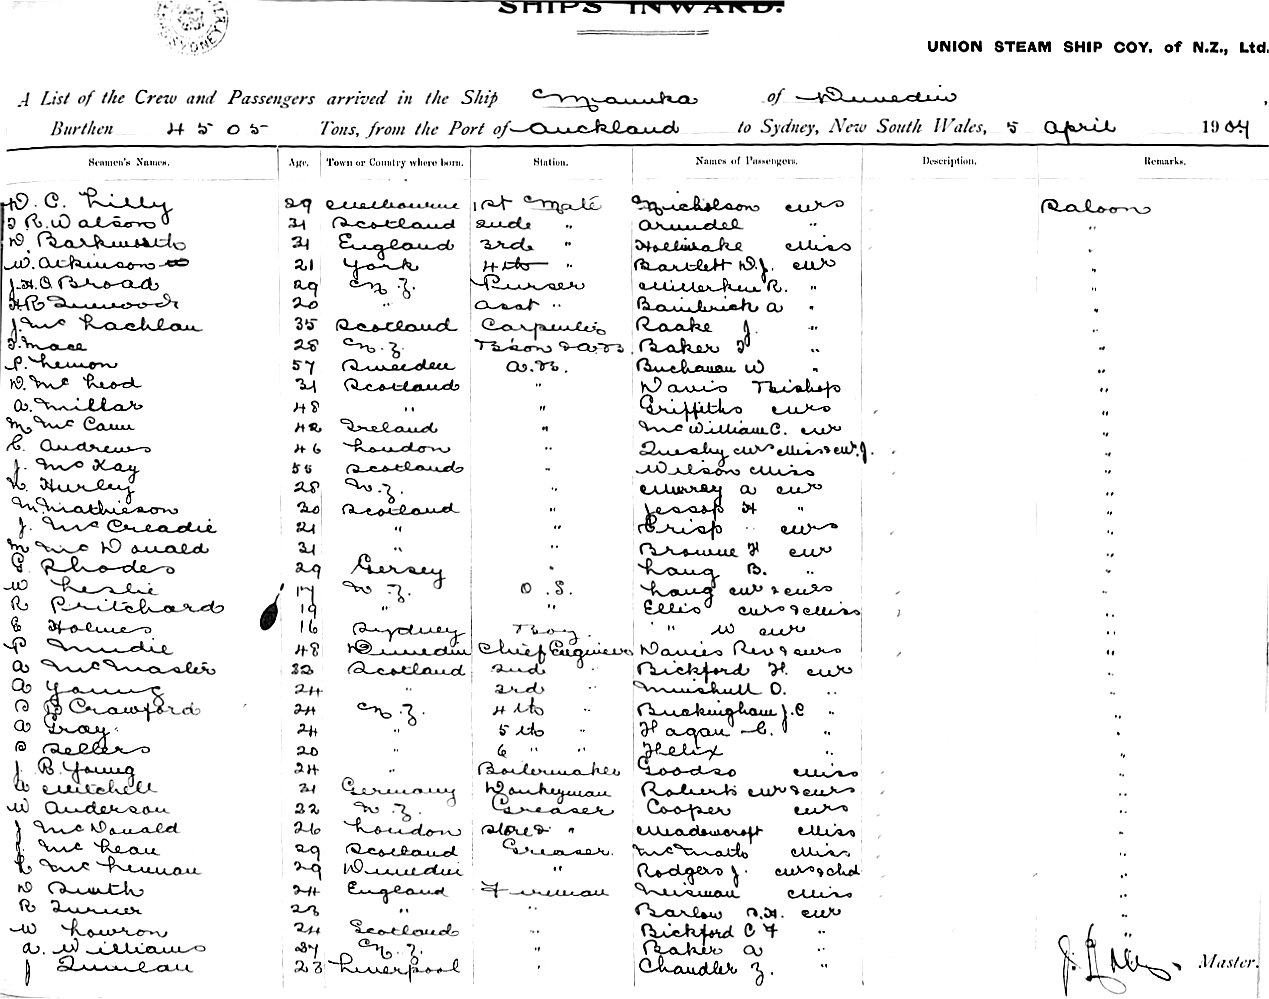 SHIPS INWARD.
SYDNEY
UNION STEAM SHIP COY. of N.Z., Ltd.
A List of the Crew and Passengers arrived in the Ship Manuka of Dunedin
Burthen 4505 Tons, from the Port of Auckland to Sydney, New South Wales, 5 April 1904
Seamen's Names. Age. Town or Country where born. Station. Names of Passengers. Description. Remarks.
D. C. Lilly 29 Melbourne 1st Mate Nicholson Mrs Saloon
R. Watson 31 Scotland 2nd " Arundel " "
D. 31 England 3rd " Miss "
W. Atkinson 21 York 4th " Bartlett W.J. Mr "
J.H.O Broad 29 N.Z. Purser R. " "
H.R 20 " Asst " Bambrick A " "
J. McLachlan 35 Scotland Carpenter Raake J. " "
Mace 28 N.Z. & A.B. Baker " "
P. Lemon 57 Sweden A.B. Buchanan W " "
D. McLeod 31 Scotland " Bishop "
A. Millar 48 " " Griffiths Mrs "
M McCann 42 Ireland " McWilliam C. Mr "
C. Andrews 46 London " Mrs Miss & Mr. J. "
J. McKay 55 Scotland " Wilson Miss "
Hurley 28 N.Z. " Murray A Mr "
M. Mathieson 30 Scotland " Jessop H " "
J. McCreadie 21 " " Crisp Mrs "
M McDonald 31 " " Browne H Mr "
G Rhodes 29 Gersey " Lang B. " "
W Leslie 17 N.Z. O.S. Lang Mr & Mrs "
R Pritchard 19 " " Ellis Mrs & Miss "
E Holmes 16 Sydney Boy " W Mr "
P Mudie 48 Dunedin Chief Engineer Davies Rev & Mrs "
A McMaster 32 Scotland 2nd " Bickford H. Mr "
A Young 24 " 3rd " O. " "
B Crawford 24 N.Z. 4th " Buckingham J.C " "
A Gray 24 " 5th " Hagan C. " "
Sellers 20 " 6 " " Helix " "
J B. Young 24 " Boilermaker Miss "
W Mitchell 31 Germany Donkeyman Roberts Mr & Mrs "
W Anderson 22 N.Z. Greaser Cooper Mrs "
J McDonald 26 London Store & " Meadowcroft Miss "
J McLean 29 Scotland Greaser Miss "
McLennan 29 Dunedin " Rodgers J. Mrs & chd "
D Smith 24 England Fireman Miss "
R Turner 23 " " Barlow Mr "
W Lowron 24 Scotland " Bickford C F " "
A. Williams 27 N.Z. " Baker A "
J Quinlan 23 Liverpool " Chandler Z. " Master.